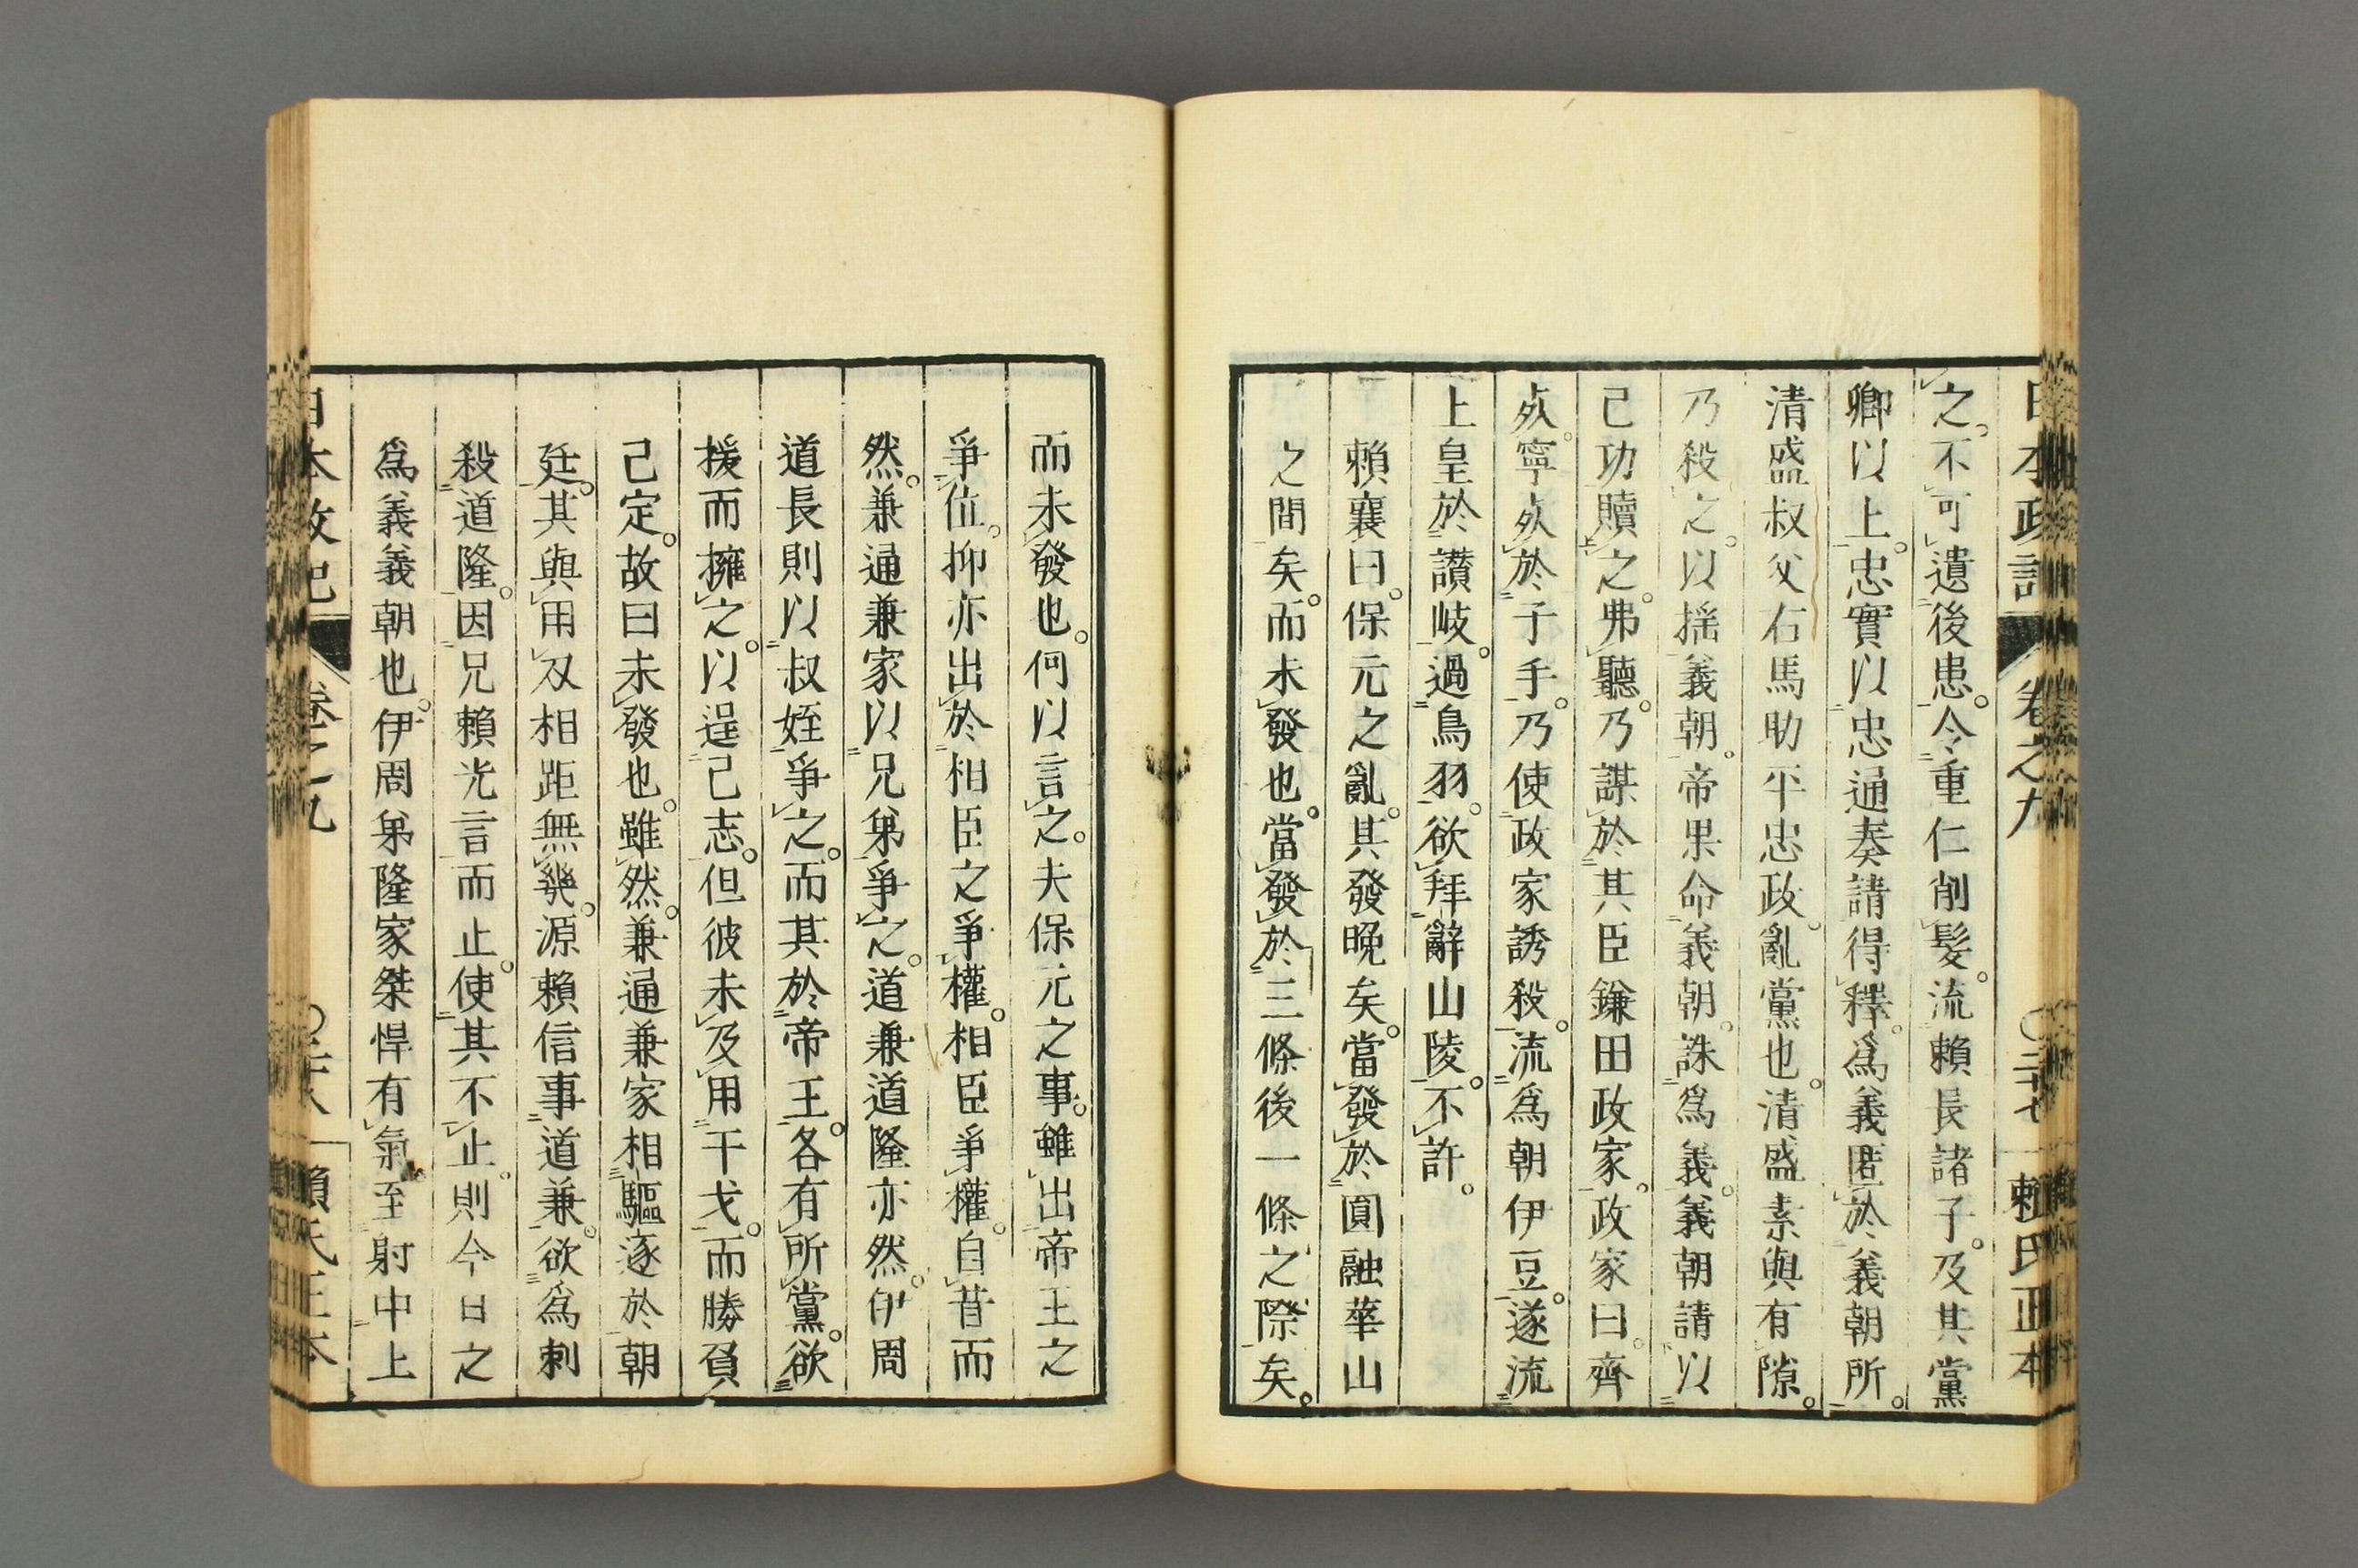 日本政記 卷之九 ○二十七 賴氏正本
之。不可遺後患。令重仁削髮。流賴長諸子。及其黨
卿以上。忠實以忠通奏請得釋。爲義匿於義朝所。
清盛叔父右馬助平忠政。亂黨也。清盛素與有隙。
乃殺之。以揺義朝。帝果命義朝。誅爲義。義朝請以
己功贖之。弗聽。乃謀於其臣鎌田政家。政家曰。齊
死。寧死於子手。乃使政家誘殺。流爲朝伊豆。遂流
上皇於讃岐。過鳥羽。欲拜辭山陵。不許。
賴襄曰。保元之亂。其發晚矣。當發於圓融華山
之間矣。而未發也。當發於三條後一條之際矣。
而未發也。何以言之。夫保元之事。雖出帝王之
爭位。抑亦出於相臣之爭權。相臣爭權。自昔而
然。兼通兼家以兄弟爭之。道兼道隆亦然。伊周
道長則以叔姪爭之。而其於帝王。各有所黨。欲
援而擁之。以逞己志。但彼未及用干戈。而勝負
己定。故曰未發也。雖然。兼通兼家相驅逐於朝
廷。其與用刄相距無幾。源賴信事道兼。欲爲刺
殺道隆。因兄賴光言而止。使其不止。則今日之
爲義義朝也。伊周弟隆家桀悍有氣。至射中上
日本政記 卷之九 ○二十八 賴氏正本